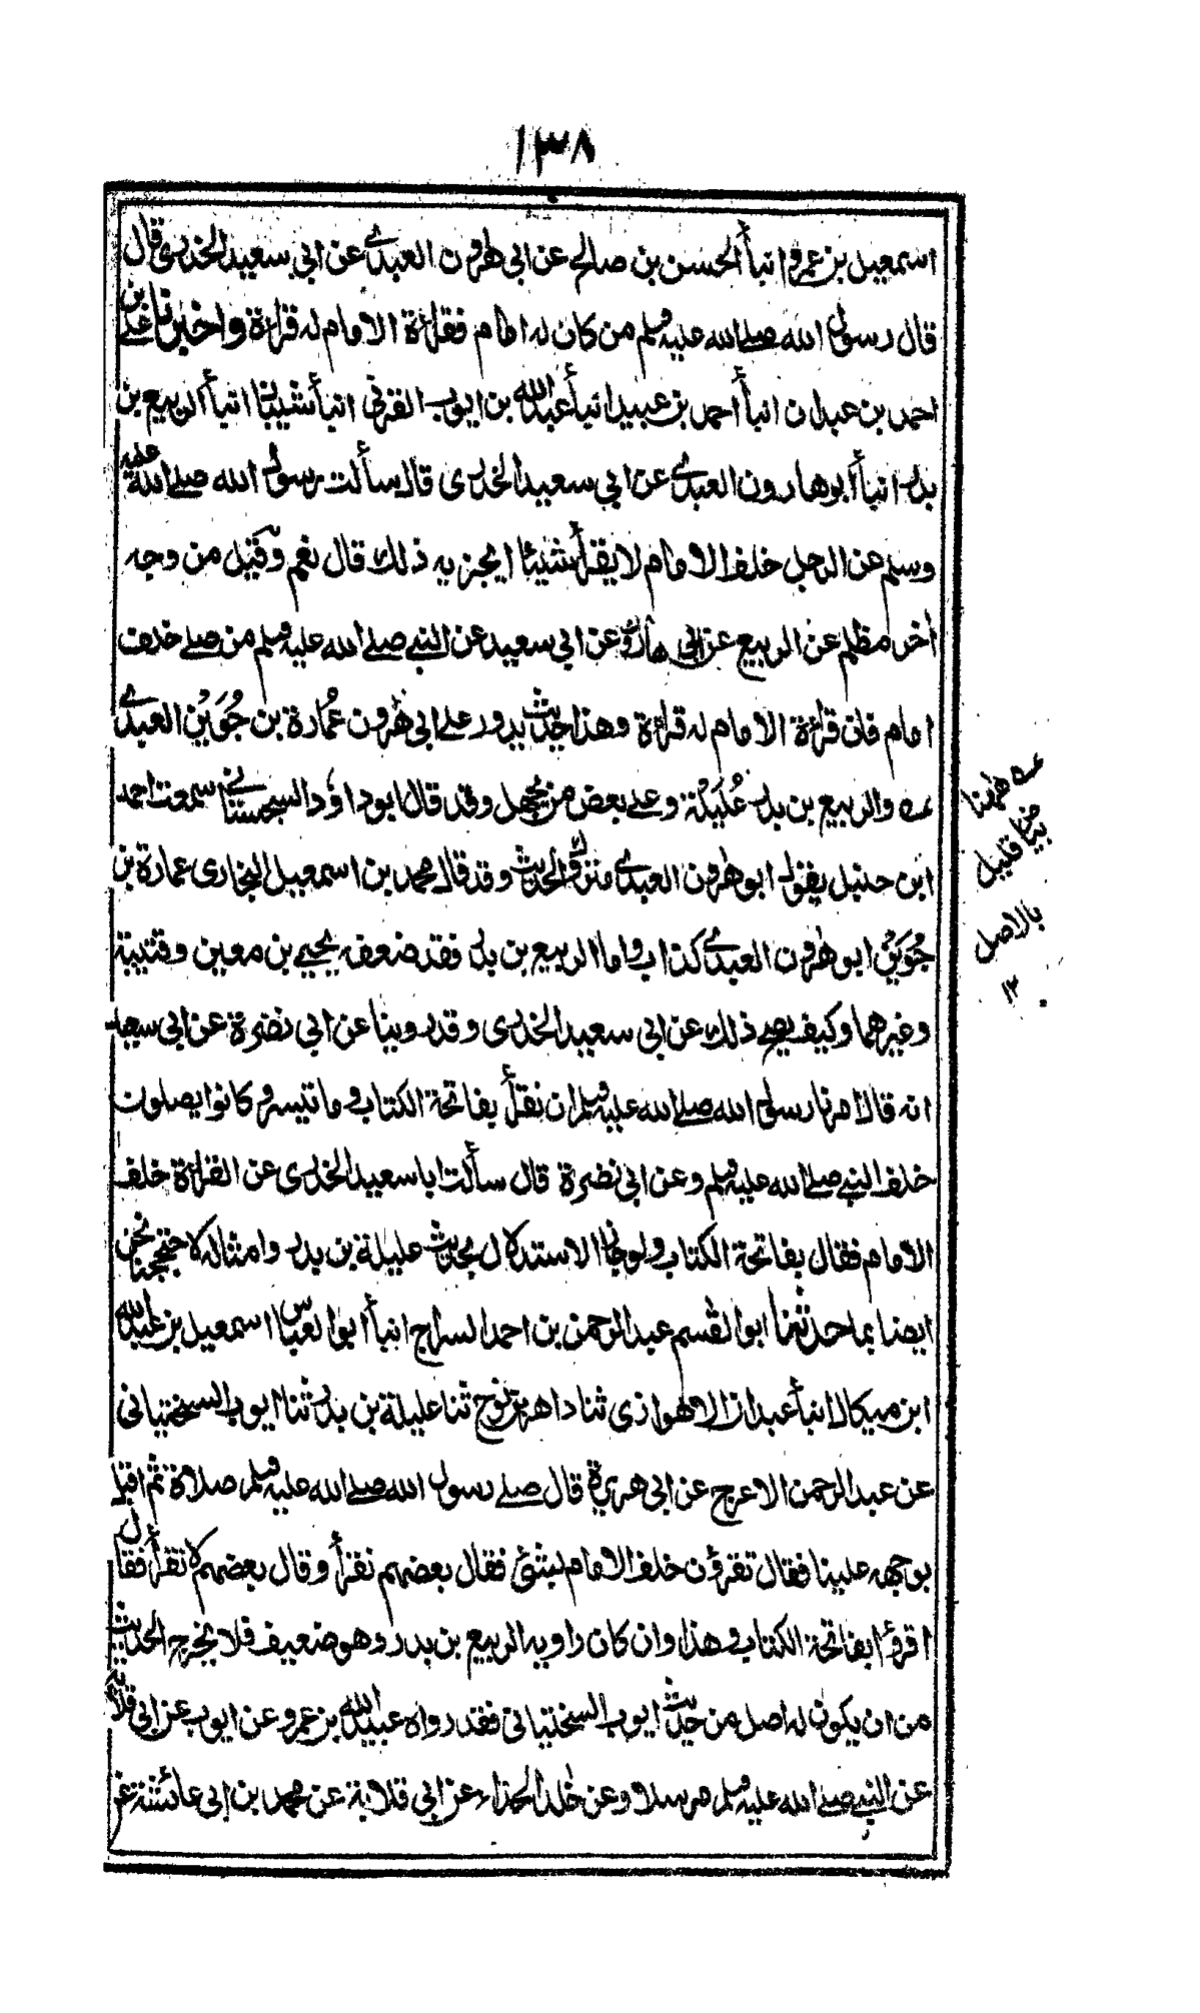 ١٣٨
اسمعيل بن عمرو انبأ الحسن بن صالح عن ابي هٰرون العبدي عن ابي سعيد الخدري قال
قال رسول الله صلے الله عليه وسلم من كان له امام فقراءة الامام له قراءة واخبرنا علي بن
احمد بن عبدان انبأ أحمد بن عبيد انبأ عبد الله بن ايوب القربي انبأ شيبان انبأ الربيع بن
بدر انبأ أبو هارون العبدي عن ابي سعيد الخدري قال سألت رسول الله صلے الله عليه
وسلم عن الرجل خلف الامام لا يقرأ شيئا ايجزيه ذلك قال نعم وقيل من وجه
أخر مظلم عن الربيع عن ابي هارون عن ابي سعيد عن النبي صلے الله عليه وسلم من صلے خلف
امام فان قراءة الامام له قراءة وهذا حديث يدور علے ابي هٰرون عُمارة بن جُوَيْن العبدي
عـه والربيع بن بدر عُلَيلة وعلے بعض من يجهل وقد قال ابو داؤد السجستاني سمعت احمد
ابن حنبل يقول ابو هٰرون العبدي متروك الحديث وقد قال محمد بن اسمعيل البخاري عمارة بن
جُوَيْن ابو هٰرون العبدي كذاب واما الربيع بن بدر فقد ضعفه يحيي بن معين وقتيبة
وغيرهما وكيف يصح ذلك عن ابي سعيد الخدري وقد روينا عن ابي نضرة عن ابي سعيد
انه قال امرنا رسول الله صلے الله عليه وسلم ان نقرأ بفاتحة الكتاب وما تيسر وكانوا يصلون
خلف النبي صلے الله عليه وسلم وعن ابي نضرة قال سألت ابا سعيد الخدري عن القراءة خلف
الامام فقال بفاتحة الكتاب ولو جاز الاستدلال بحديث عليلة بن بدر وامثاله لاحتججنا نحن
ايضا بما حدثنا ابو القٰسم عبد الرحمن بن احمد السراج انبأ ابو العباس اسمعيل بن عبد الله
ابن ميكال انبأ عبدان الاهوازي ثنا داهر بن نوح ثنا عليلة بن بدر ثنا ايوب السختياني
عن عبد الرحمن الاعرج عن ابي هريرة قال صلے رسول الله صلے الله عليه وسلم صلاة ثم اقبل
بوجهه علينا فقال تقرؤن خلف الامام بشئ فقال بعضهم نقرأ وقال بعضهم لا نقرأ فقال
اقرؤا بفاتحة الكتاب وهذا وان كان راويه الربيع بن بدر وهو ضعيف فلا يخرج الحديث
من ان يكون له اصل من حديث ايوب السختياني فقد رواه عبيد الله بن عمرو عن ايوب عن ابي قلابة
عن النبي صلے الله عليه وسلم مرسلا وعن خٰلد الحذاء عن ابي قلابة عن محمد بن ابي عائشة عن
عـه ههنا
بياض قليل
بالاصل
١٢